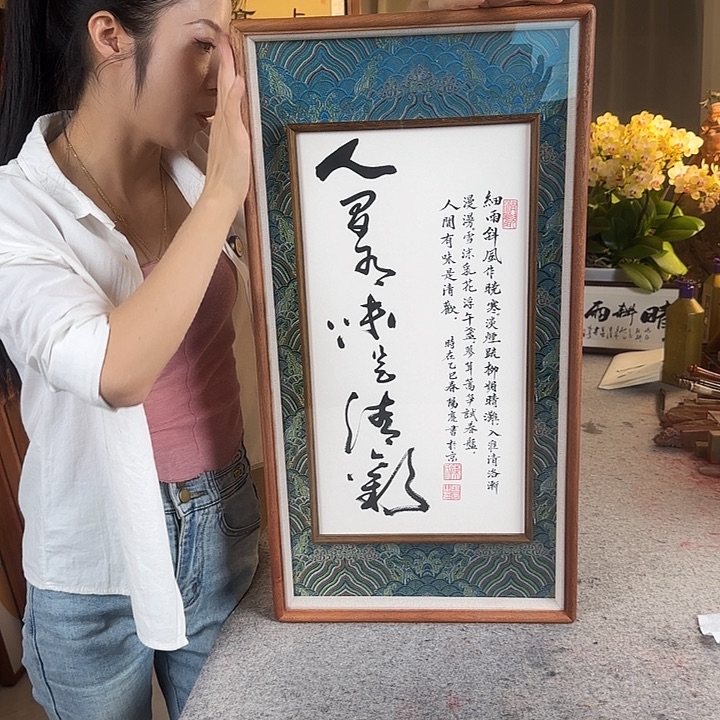 人間有味是清歡
細雨斜風作曉寒淡煙疏柳媚晴灘入淮清洛漸
漫漫雪沫乳花浮午盞蓼茸蒿筍試春盤
人間有味是清歡 時在乙巳春陽亮書於京
晴耕雨